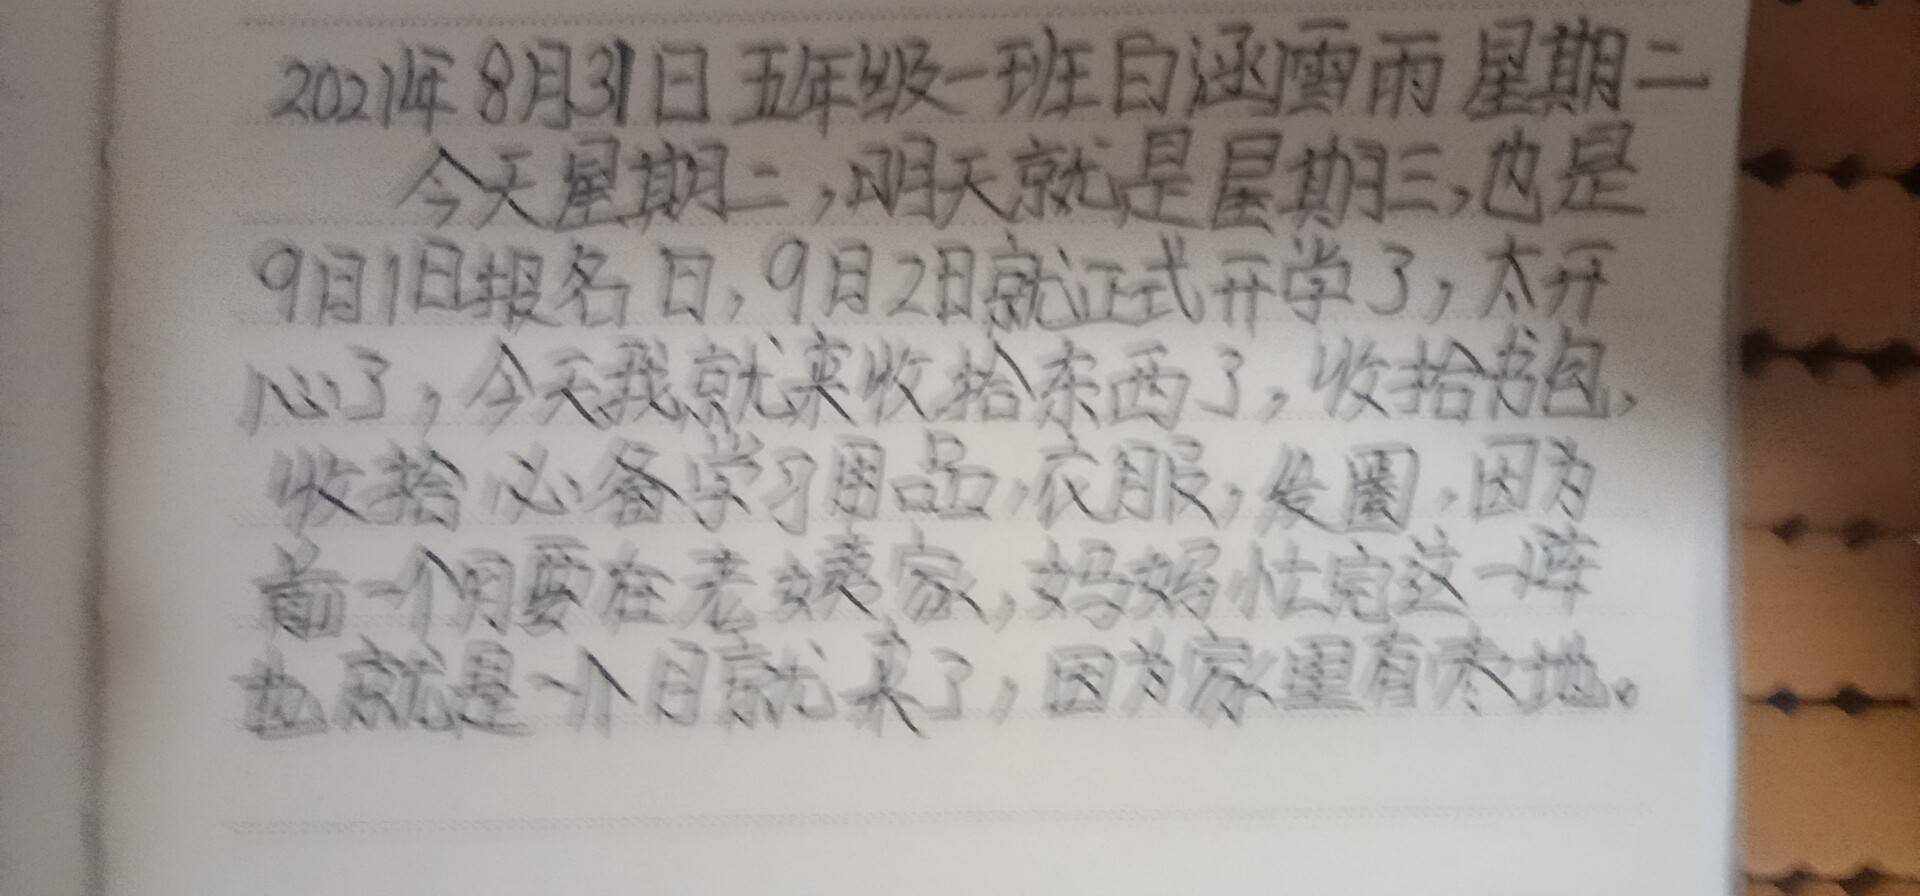 2021年8月31日 五年级一班白涵雪雨 星期二
今天星期二，明天就是星期三，也是
9月1日报名日，9月2日就正式开学了，太开
心了，今天我就来收拾东西了，收拾书包，
收拾必备学习用品，衣服，发圈，因为
前一个月要在老姨家，妈妈忙完这一阵
也就是一个月就来了，因为家里有枣地。